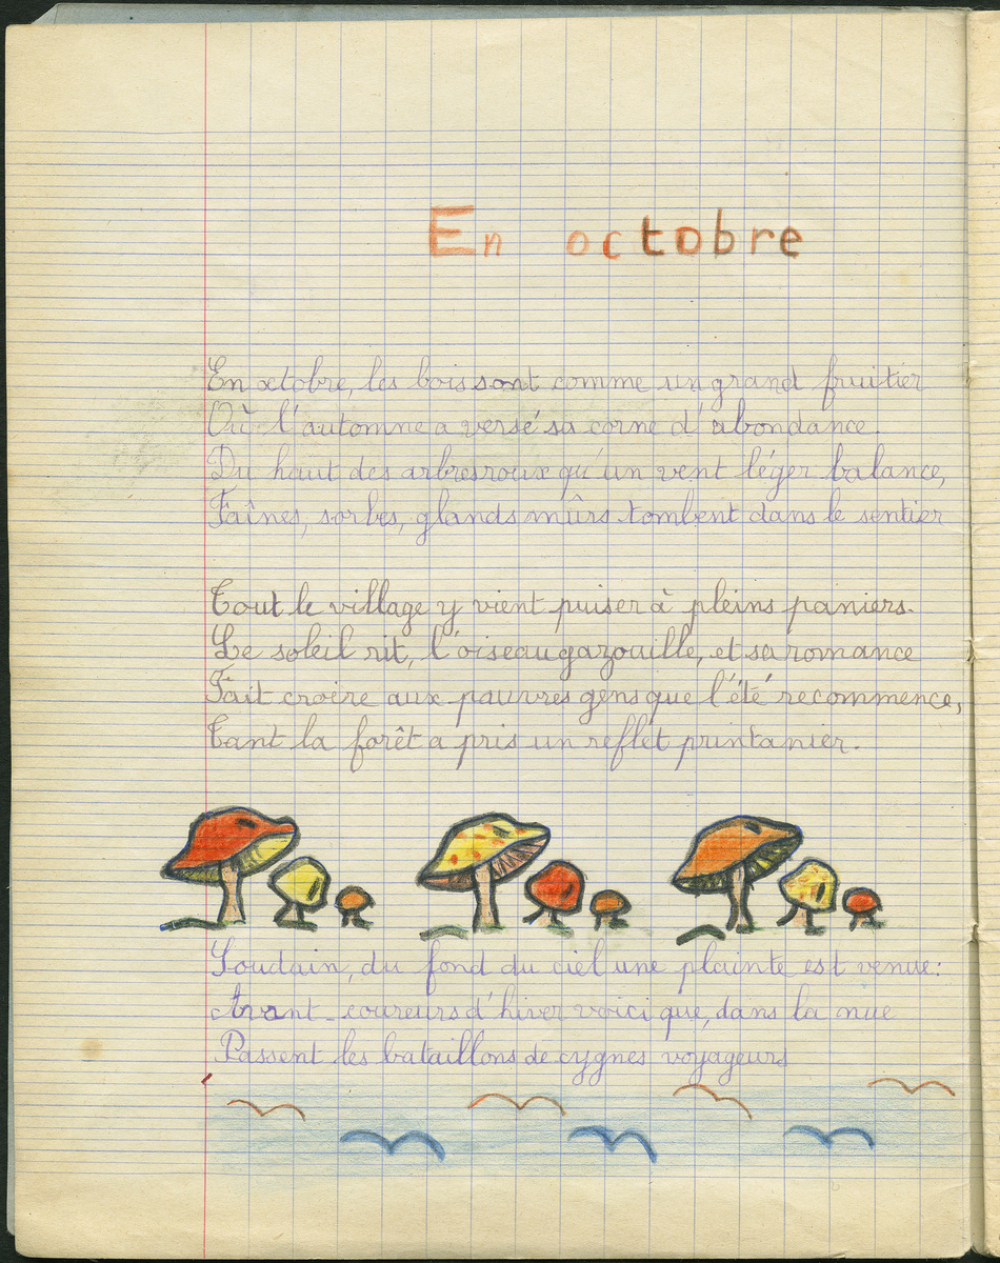 En octobre
En octobre, les bois sont comme un grand fruitier
Où l'automne a versé sa corne d'abondance.
Du haut des arbres roux qu'un vent léger balance,
Faînes, sorbes, glands mûrs tombent dans le sentier
Tout le village y vient puiser à pleins paniers.
Le soleil rit, l'oiseau gazouille, et sa romance
Fait croire aux pauvres gens que l'été recommence,
Tant la forêt a pris un reflet printanier.
Soudain, du fond du ciel une plainte est venue:
Avant-coureurs d'hiver voici que, dans la nue
Passent les bataillons de cygnes voyageurs